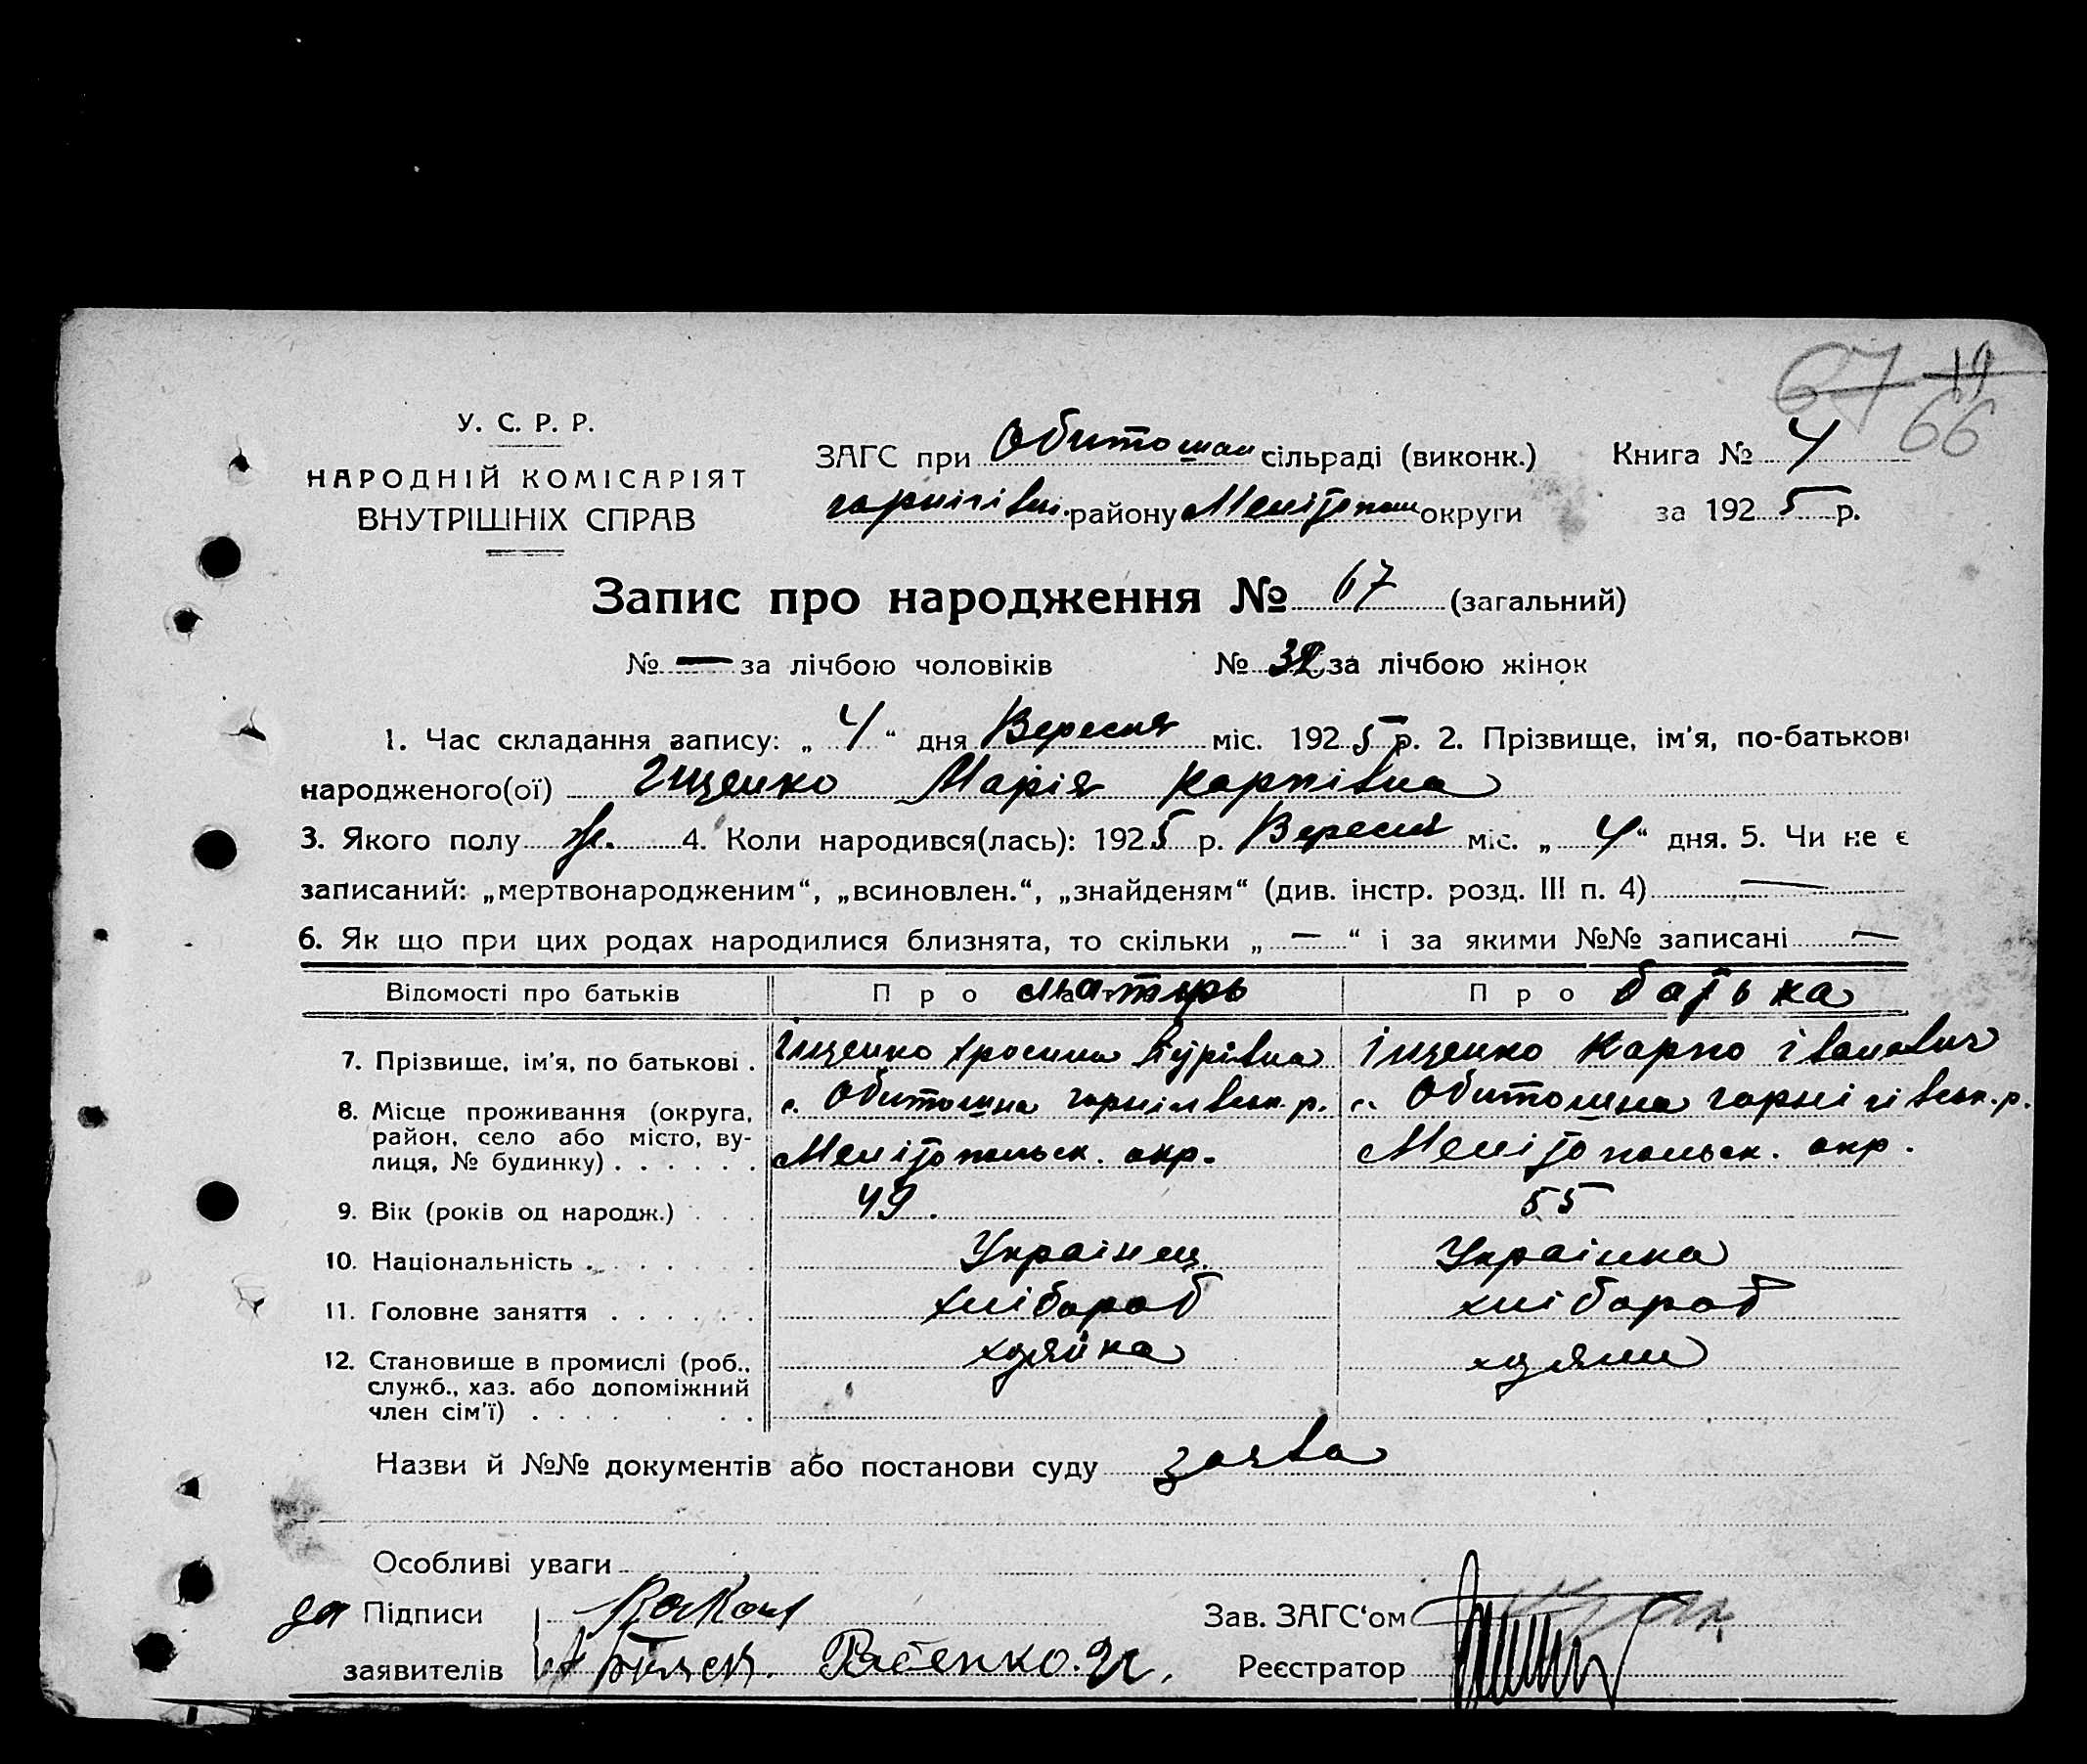 67 19
66
У. С. Р. Р.
НАРОДНІЙ КОМІСАРІЯТ
ВНУТРІШНІХ СПРАВ
ЗАГС при Обитошан сільраді (виконк.)
чернігівськ. району Мелітопол округи
Книга № 4
за 1925 р.
Запис про народження № 67 (загальний)
№ — за лічбою чоловіків № 32 за лічбою жінок
1. Час складання запису: „ 4 “ дня Вересня міс. 1925 р. 2. Прізвище, ім'я, по-батькові
народженого(ої) Іщенко Марія Карпівна
3. Якого полу ж. 4. Коли народився(лась): 1925 р. Вересня міс. „ 4 “ дня. 5. Чи не є
записаний: „мертвонародженим“, „всиновлен.“, „знайденям“ (див. інстр. розд. III п. 4) —
6. Як що при цих родах народилися близнята, то скільки „ — “ і за якими №№ записані —
Відомості про батьків Про матірь Про батька
7. Прізвище, ім'я, по батькові . Іщенко Іщенко Карпо Іванович
8. Місце проживання (округа, с. Обитошна чернігівськ. р. с. Обитошна чернігівськ. р.
район, село або місто, ву- Мелітопольск. окр. Мелітопольск. окр.
лиця, № будинку) . . . . . .
9. Вік (років од народж.) . . . 49. 55
10. Національність . . . . . . . Українец Українка
11. Головне заняття . . . . . . хлібороб хлібороб
12. Становище в промислі (роб., хазяйка хазяин
служб., хаз. або допоміжний
член сім'ї) . . . . . . .
Назви й №№ документів або постанови суду заява
Особливі уваги
за Підписи
заявителів Рябенко.
Зав. ЗАГС‘ом
Реєстратор